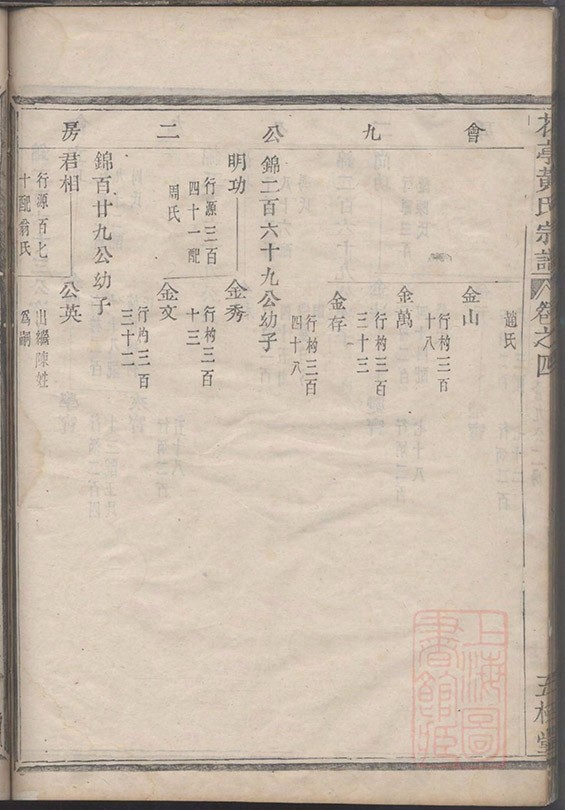 亭黃氏宗譜
卷之四
會九公二房
趙氏
金山
行杓三百
十八
金萬
行杓三百
三十三
金存
行杓三百
四十八
錦二百六十九公幼子
明功
行源三百
四十一配
周氏
金秀
行杓三百
十三
金文
行杓三百
三十二
錦百廿九公幼子
君相
行源百七
十配翁氏
公英
出繼陳姓
爲嗣
上海圖
書館藏